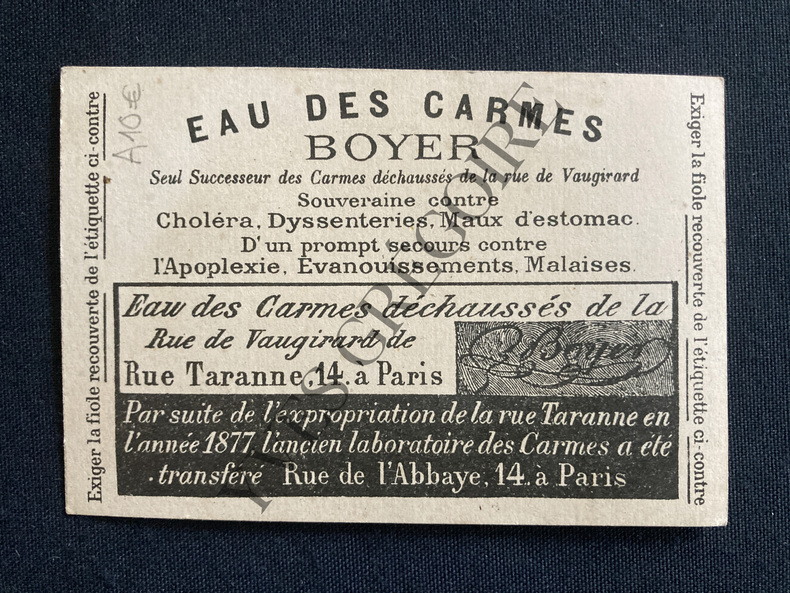 EAU DES CARMES
BOYER
Seul Successeur des Carmes déchaussés de la rue de Vaugirard
Souveraine contre
Choléra, Dyssenteries, Maux d'estomac.
D'un prompt secours contre
l'Apoplexie, Evanouissements, Malaises.
Eau des Carmes déchaussés de la
Rue de Vaugirard de
Rue Taranne, 14. à Paris
Boyer
Par suite de l'expropriation de la rue Taranne en
l'année 1877, l'ancien laboratoire des Carmes a été
transféré Rue de l'Abbaye, 14. à Paris
Exiger la fiole recouverte de l'étiquette ci-contre
Exiger la fiole recouverte de l'étiquette ci-contre
A10€
YVES GRÉGOIRE